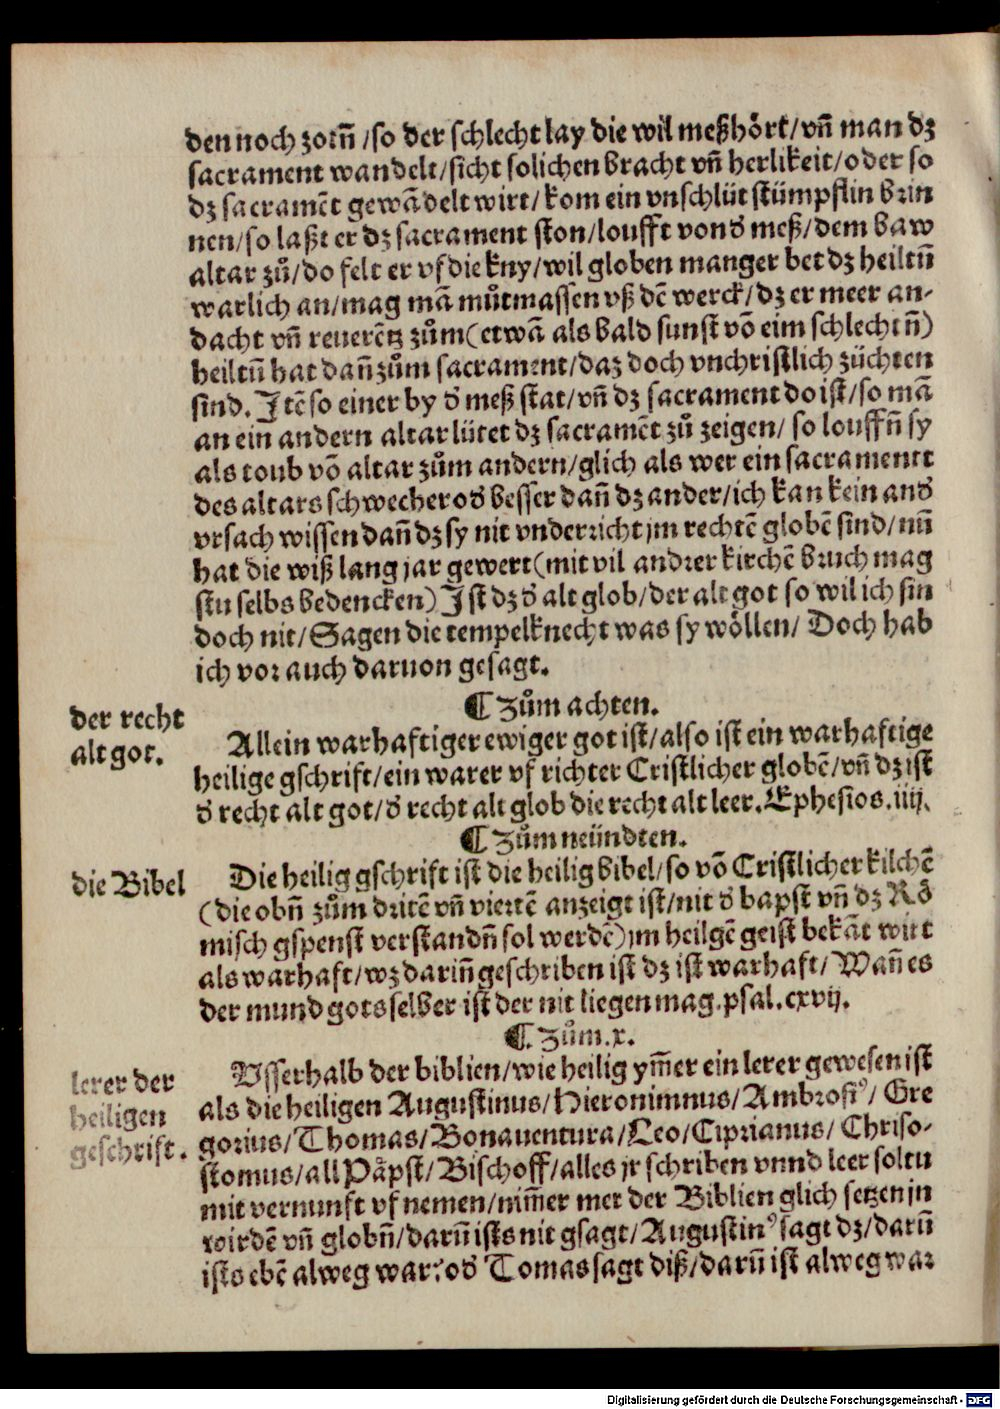 den noch zorñ /so der schlecht lay die wil meßhört/vñ man dz
sacrament wandelt/sicht solichen bracht vñ herlikeit/oder so
dz sacramēt gewādelt wirt/kom ein vnschlüt stümpflin brin
nen/so laßt er dz sacrament ston/loufft von ð meß/dem baw
altar zů/do felt er vf die kny/wil globen manger bet dz heiltū
warlich an/mag mā můtmassen vß dē werck/dz er meer an-
dacht vñ reuerētz zům(etwā als bald sunst vō eim schlechtñ)
heiltū hat dañ zům sacrament/daz doch vnchristlich züchten
sind. Itē so einer by ð meß stat/vñ dz sacrament do ist/so mā
an ein andern altar lütet dz sacramēt zů zeigen/ so louffñ sy
als toub vō altar zům andern/glich als wer ein sacramentt
des altars schwecher oð besser dañ dz ander/ich kan kein anð
vrsach wissen dañ dz sy nit vnderricht jm rechtē globē sind/nū
hat die wiß lang jar gewert(mit vil andrer kirchē bruch mag
stu selbs bedencken) Ist dz ð alt glob/der alt got so wil ich sin
doch nit/Sagen die tempelknecht was sy wöllen/ Doch hab
ich vor auch daruon gesagt.
¶ Zům achten.
der recht
alt got.
Allein warhaftiger ewiger got ist/also ist ein warhaftige
heilige gschrift/ein warer vf richter Cristlicher globē/vñ dz ist
ð recht alt got/ð recht alt glob die recht alt leer. Ephesios.iiij.
¶ Zům neündten.
die Bibel
Die heilig gschrift ist die heilig bibel/so vō Cristlicher kilchē
(die obñ zům dritē vñ viertē anzeigt ist/nit ð bapst vñ dz Rö
misch gspenst verstandñ sol werdē)jm heilgē geist bekāt wirt
als warhaft/wz dariñ geschriben ist dz ist warhaft/Wañ es
der mund gots selber ist der nit liegen mag.psal.cxvij.
¶. Zům.x.
lerer der
heiligen
geschrift.
Vsserhalb der biblien/wie heilig ym̄er ein lerer gewesen ist
als die heiligen Augustinus/Hieronimnus/Ambrosiꝰ/ Gre
gorius/Thomas/Bonauentura/Leo/Ciprianus/ Chriso-
stomus/all Päpst/Bischoff/alles jr schriben vnnd leer soltu
mit vernunft vf nemen/nim̄er mer der Biblien glich setzen jn
wirdē vñ globñ/darū ists nit gsagt/Augustinꝰ sagt dz/darū
ists ebē alweg war:oð Tomas sagt diß/darū ist alweg war
Digitalisierung gefördert durch die Deutsche Forschungsgemeinschaft - DFG